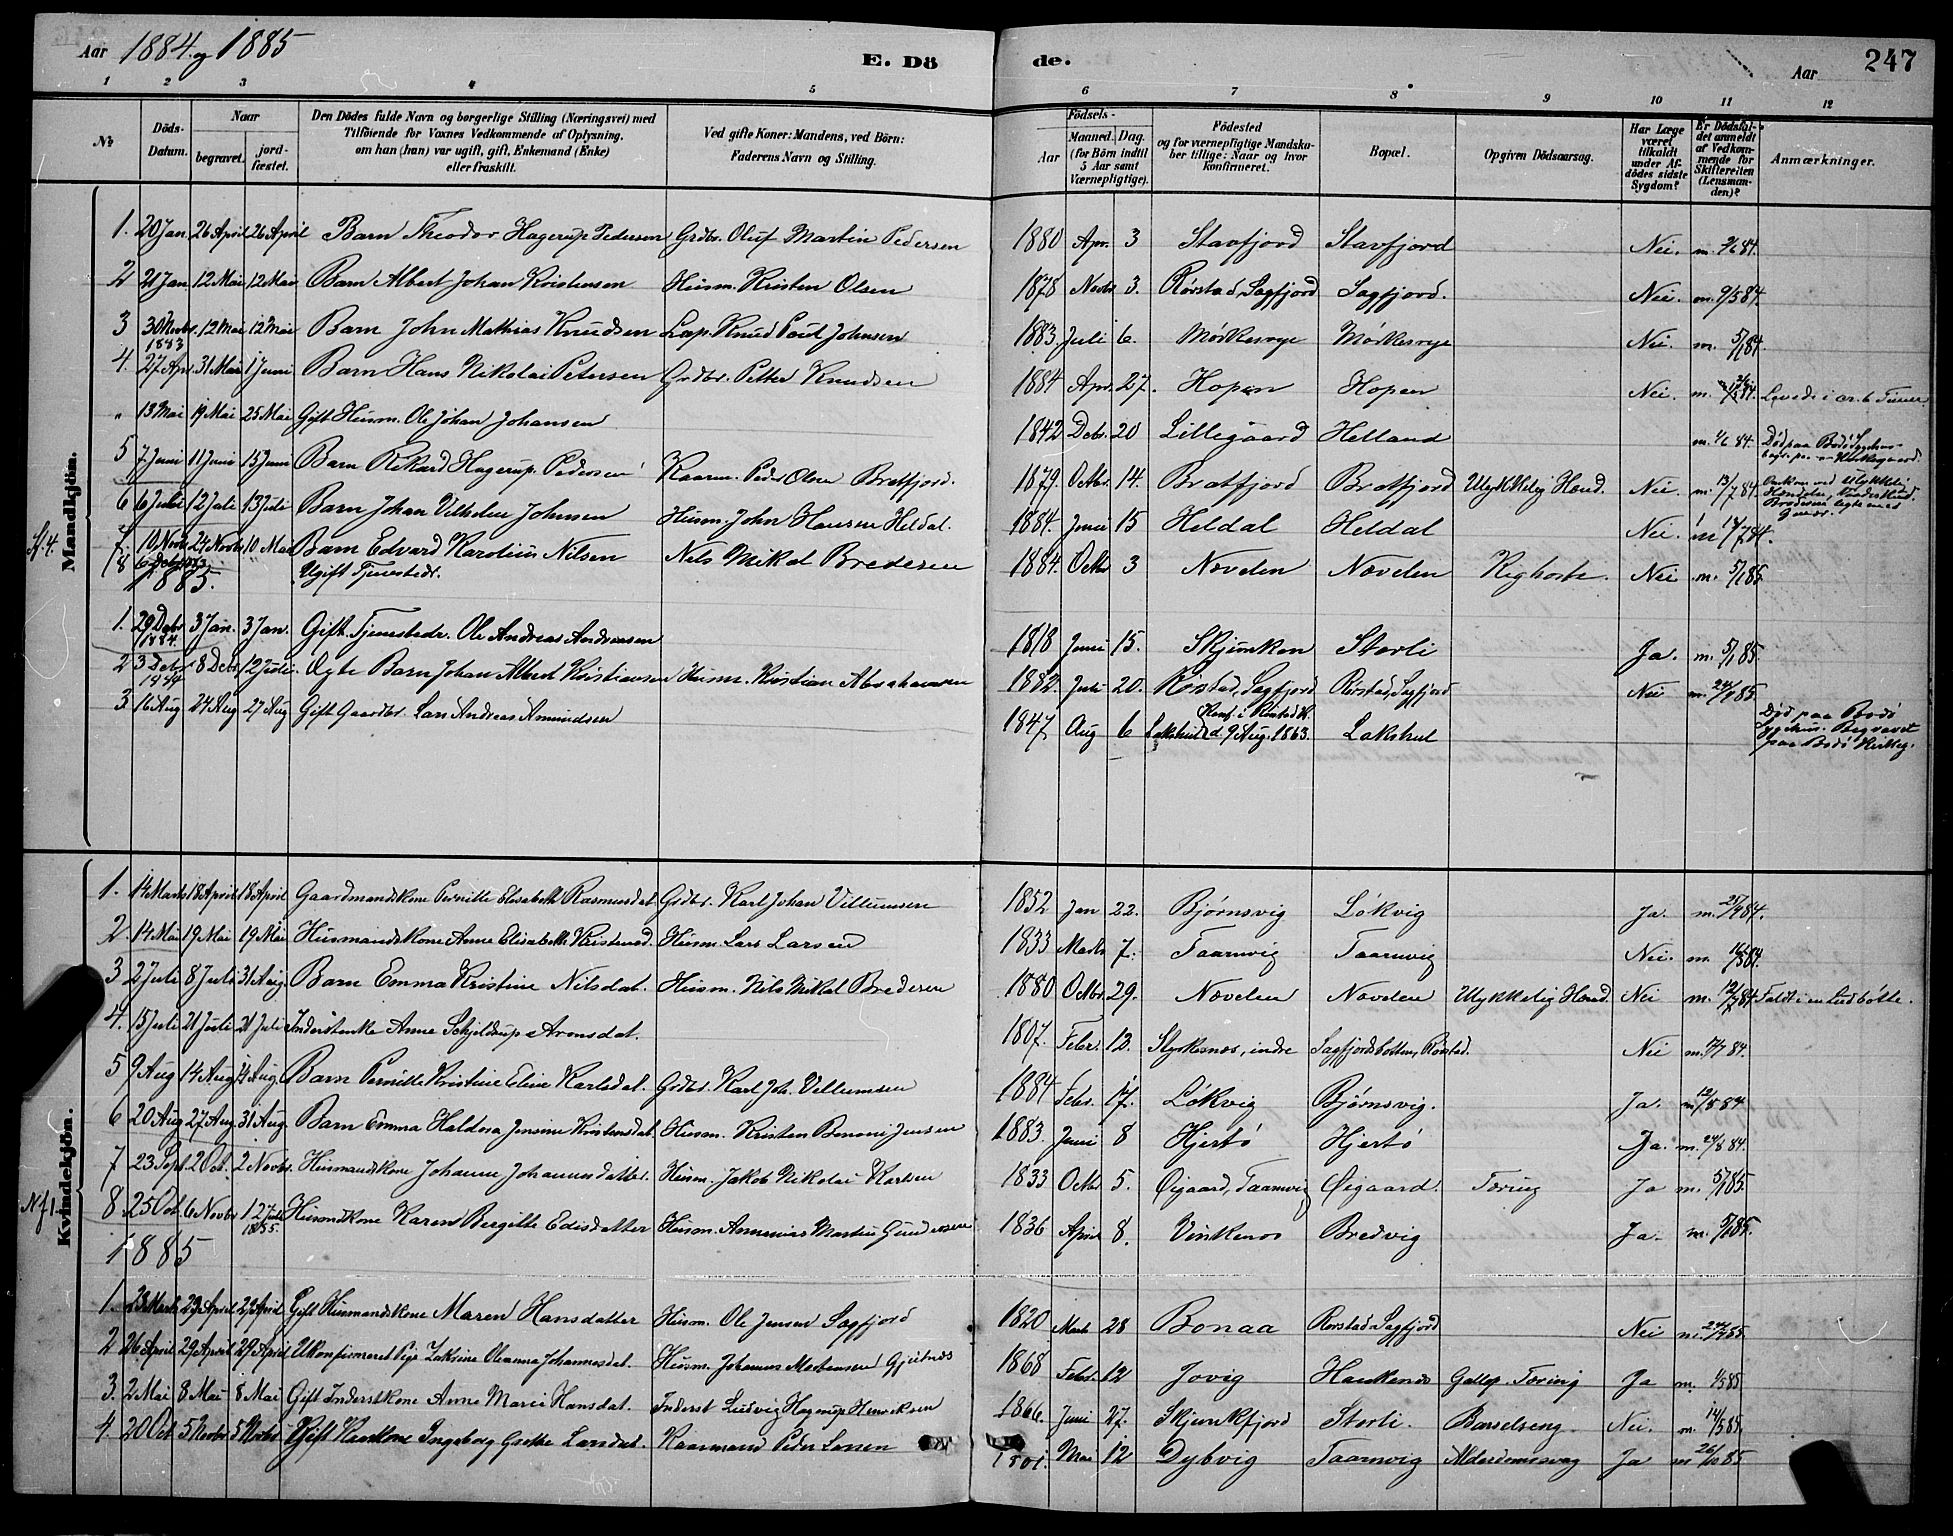 Aar 1884 og 1885 E. Dö de. Aar 247
1 2 3 4 5 6 7 8 9 10 11 12
No
Döds-Datum.
Naar begravet. jordfæstet.
Den Dödes fulde Navn og borgerlige Stilling (Næringsvei) med
Tilföiende for Voxnes Vedkommende af Oplysning,
om han (hun) var ugift, gift, Enkemand (Enke)
eller fraskilt.
Ved gifte Koner: Mandens, ved Börn:
Faderens Navn og Stilling.
Födsels-
Aar Maaned. Dag.
(for Börn indtil
5 Aar samt
Værnepligtige).
Födested
og for værnepligtige Mandska-
ber tillige: Naar og hvor
konfirmeret.
Bopæl.
Opgiven Dödsaarsag.
Har Læge
været
tilkaldt
under Af-
dödes sidste
Sygdom?
Er Dödsfal-
det anmeldt
af Vedkom-
mende for
Skifteretten
(Lensman-
den)?
Anmærkninger.
Mandkjön.
1. 20 Jan. 26 April 26 April Barn Theodor Hagerup Pedersen Grdbr. Oluf Martin Pedersen 1880 Apr. 3 Stavfjord Stavfjord Nei. m. 2/6 84.
2 21 Jan. 12 Mai 12 Mai Barn Albert Johan Kristensen Husm. Kristen Olsen 1878 Novbr 3. Rørstad, Sagfjord Sagfjord. Nei. m. 9/5 84.
3 30 Novbr. 1883 12 Mai 12 Mai Barn John Mathias Knudsen Lap. Knud Poul Johnsen 1883. Juli 6. Mørkesvye Mørkesvye Nei. m. 5/1 84.
4. 27 Apr. 31 Mai 1 Juni Barn Hans Nikolai Petersen Grdbr. Petter Knudsen 1884 Apr. 27. Hopen Hopen Nei. m. 84. Levede i cr. 6 Timer.
" 13 Mai 19 Mai 25 Mai Gift Husm. Ole Johan Johansen 1842 Debr. 20 Lillegaard Helland m. 1/6 84. Död paa Bodö Sygehus
5 7 Juni 11 Juni 15 Juni Barn Rikard Hagerup Pedersen Kaarm. Peder Olsen Bratfjord. 1879. Octbr. 14. Bratfjord Bratfjord Ulykkelig Hænd. Nei m. 13/7 84.
6 6 Juli 12 Juli 13 Juli Barn Johan Vilhelm Johnsen Husm. John Hansen Heldal. 1884. Juni 15 Heldal Heldal Nei. m 84.
7. 10 Novb 24 Novbr 10 Mai Barn Edvard Karolius Nilsen Nels Mikal Bredesen 1884. Octbr 3 Nøvelen Nøvelen Kighoste. Nei m. 5/1 85.
8 6 Ugift Tjenestedr.
1885.
1. 29 Debr 1884. 3 Jan. 3 Jan. Gift Tjenestedr. Ole Andreas Andreasen 1818 Juni 15. Skjunken Storli Ja. m. 5/1 85.
2 3 Debr 8 Debr 12 Juli. Ægte Barn Johan Albert Kristiansen Husm. Kristian Abrahamsen 1882. Juli 20. Rørstad, Sagfjord Rørstad, Sagfjord Nei m. 85.
3 16 Aug 24 Aug 27 Aug Gift Gaardbr. Lars Andreas Amundsen 1847. Aug 6 Lakshul Konf. i Rørstad K. d. 9 Aug. 1863. Lakshul Död paa Bodö
Sygehus. Begravet
paa Bodö Kirkeg.
Kvindekjön.
1. 14 Marts 18 April 18 April Gaardmandskone Pernille Elisabeth Rasmusdat. Grdbr. Karl Johan Villumsen 1852 Jan 22. Bjørnsvig Løkvig Ja. m. 84.
2 14 Mai 19 Mai 19 Mai Husmandskone Anne Elisabeth Kristensd. Husm. Lars Larsen 1833 Marts 7. Taarnvig Taarnvig Nei. m. 84.
3 2 Juli 8 Juli 31 Aug. Barn Emma Kristine Nilsdat. Husm. Nils Mikal Bredesen 1880 Octbr. 29. Nøvelen Nøvelen Ulykkelig Hænd. Nei m. 12/7 84. Faldt i en Ludbøtte.
4. 15 Juli 21 Juli 21 Juli Inderstenke Anne Schjeldrup Aronsdat. 1807. Febr. 12. Styrkesnæs, indre Sagfjordbotten, Rørstad. Nei m. 84.
5 9 Aug 14 Aug Aug. Barn Pernille Kristine Eline Karlsdat. Grdbr. Karl Joh. Villumsen 1884 Febr. 17. Løkvig Bjørnsvig. Ja. m. 12/8 84
6 20 Aug 27 Aug 31 Aug. Barn Emma Haldora Jensine Kristensdat. Husm. Kristen Benoni Jensen 1883. Juni 8 Hjertö Hjertö Ja. m. 24/8 84.
7 23 Sept. 2 Oct. 2 Novbr. Husmandskone Johanne Johannesdatter. Husm. Jakob Nikolai Karlsen 1833 Octbr 5. Øigaard, Taarnvig Øigaard. Tæring Ja m. 5/1 85.
8 25 Oct. 6 Novbr 12 Juli 1885. Husmdkone Karen Bergitte Edisdatter Husm. Martin Gundersen 1836 April 8. Vinkenes Bredvig Ja. m. 5/1 85.
1885
1. 23 Marts 29 April 29 April Gift Husmandskone Maren Hansdatter Husm. Ole Jensen Sagfjord 1820 Marts 28 Bonaa Rørstad Sagfjord Nei m. 85.
2 26 April 29 April 29 April Ukonfirmeret Pige Olianna Johannesdat. Husm. Johannes Mortensen Gjeitnæs 1868 Febr. 12 Jovig Haukenes Gallop. Tæring Ja m. 1/5 85.
3. 2 Mai 8 Mai 8 Mai Gift Inderstkone Anne Marie Hansdat. Inderst Ludvig Hagerup Henriksen 1866. Juni 27. Skjunkfjord Storli. Barselseng. Nei. m. 14/5 85.
4. 20 Oct 5 Novbr 5 Novbr Gift Ingeborg Grethe Larsdat. Kaarmand Peder Larsen 1801. Mai 12 Dybvig Taarnvig Alderdomssvag Ja m 26/10 85